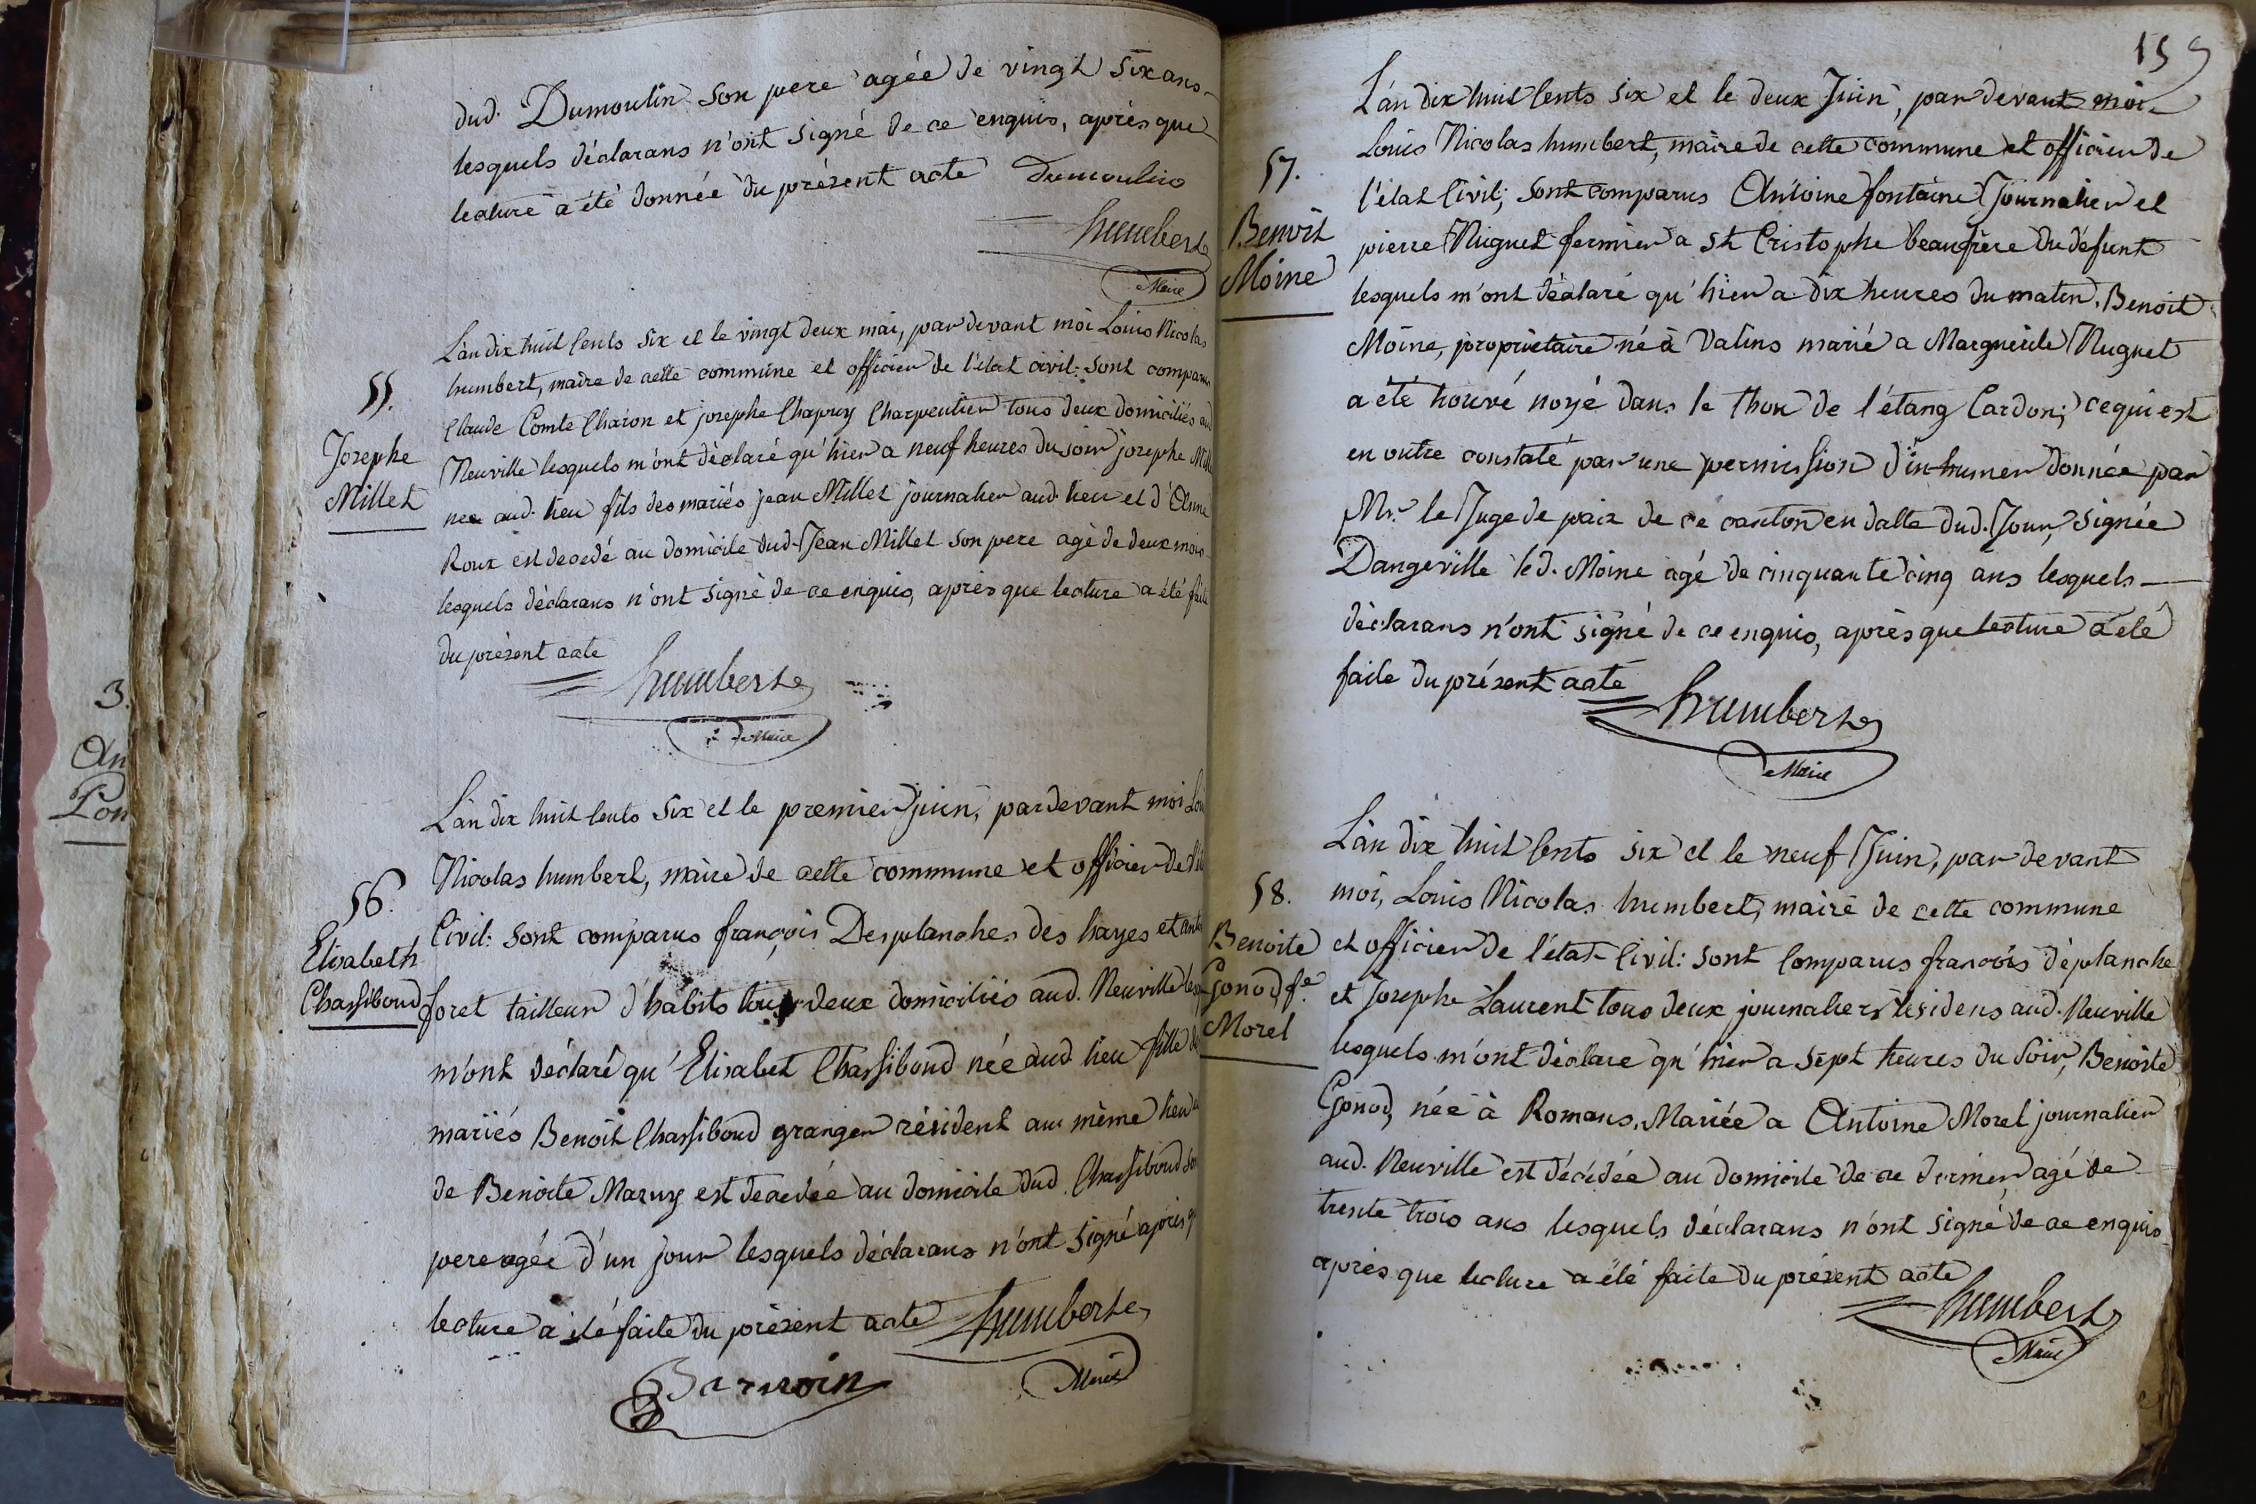 dud. Dumoulin son pere agée de vingt six ans
lesquels déclarans n'ont signé de ce enquis, après que
lecture a été donnée du présent acte Dumoulin
humbert
Maire
55.
Josephe
Millet
L'an dix huit Cents six et le vingt deux mai, par devant moi Louis Nicolas
humbert, maire de cette commune et officier de l'état civil: sont comparus
Claude Comte Charon et josephe Chapuy Charpentier tous deux domiciliés au
Neuville lesquels m'ont déclaré qu'hier a neuf heures du soir josephe Mill
née aud. lieu fils des mariés jean Millet journalier aud. lieu et d'Anne
Roux est decedé au domicile dud. Jean Millet son pere agé de deux mois
lesquels déclarans n'ont signé de ce enquis, après que lecture a été faite
du présent acte
humbert
Maire
56.
Elisabeth
Chassiboud
L'an dix huit Cents six et le premier juin, pardevant moi Lou
Nicolas humbert, maire de cette commune et officier de l'é
Civil: sont comparus françois Desplanches des hayes et ant
foret tailleur d'habits tous deux domiciliés aud. Neuville les
m'ont déclaré qu'Elisabet Chassiboud née aud lieu fille d
mariés Benoit Chassiboud granger résident au même lieu
de Benoite Maruy est decedée au domicile dud Chassiboud so
pere agée d'un jour lesquels déclarans n'ont signé après q
lecture a été faite du présent acte humbert
Maire
159
57.
Benoit
Moine
L'an dix huit Cents six et le deux Juin, par devant moi
Louis Nicolas humbert, maire de cette commune et officier de
l'état Civil; sont comparus Antoine fontaine Journalier et
pierre Nuguet fermier a St Cristophe beaufrère du défunt
lesquels m'ont déclaré qu'hier a dix heures du matin, Benoit
Moine, propriétaire né à Valins marié a Marguerite Nuguet
a été trouvé noyé dans le thou de l'étang Cardon; ce qui est
en outre constaté par une permission d'inhumer donnée par
Mr. le Juge de paix de ce canton en datte dud. Jour, signée
Dangeville led. Moine agé de cinquante cinq ans lesquels
déclarans n'ont signé de ce enquis, après que lecture a été
faite du présent acte
humbert
Maire
58.
Benoite
Gonod fe.
Morel
L'an dix huit Cents six et le neuf Juin, par devant
moi, Louis Nicolas humbert, maire de cette commune
et officier de l'état Civil: sont Comparus francois déplanche
et Josephe Laurent tous deux journaliers résidens aud. Neuville
lesquels m'ont déclaré qu'hier a sept heures du soir, Benoite
Gonod, née à Romans, Mariée a Antoine Morel journalier
aud. Neuville est décédée au domicile de ce dernier agé de
trente trois ans lesquels déclarans n'ont signé de ce enquis
après que lecture a été faite du présent acte
humbert
Maire